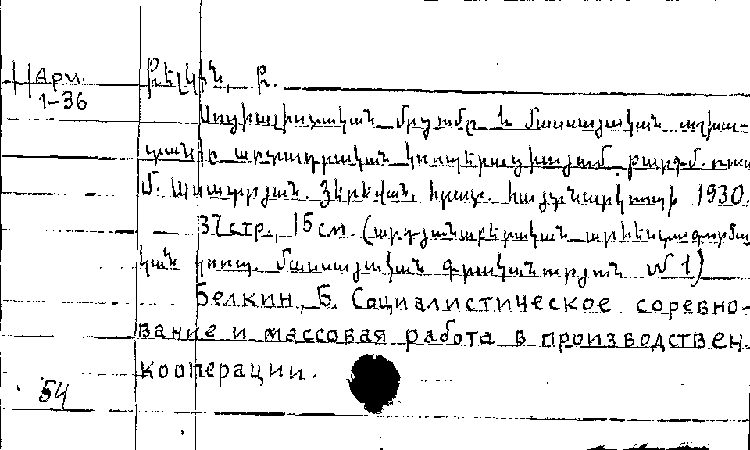 Арм.
1-36
Բելկին, Բ.
Սոցիալիստական մրցումը և մասսայական աշխա-
տանքը արտադրական կոոպերացիայում թարգմ. ռուս
Մ. Յերեվան, հրատ. 1930.
37 стр., 15 см. (արդյունաբերական
կան կոոպ. մասսայական գրականություն № 1)
Белкин, Б. Социалистическое соревно-
вание и массовая работа в производствен.
кооперации.
54